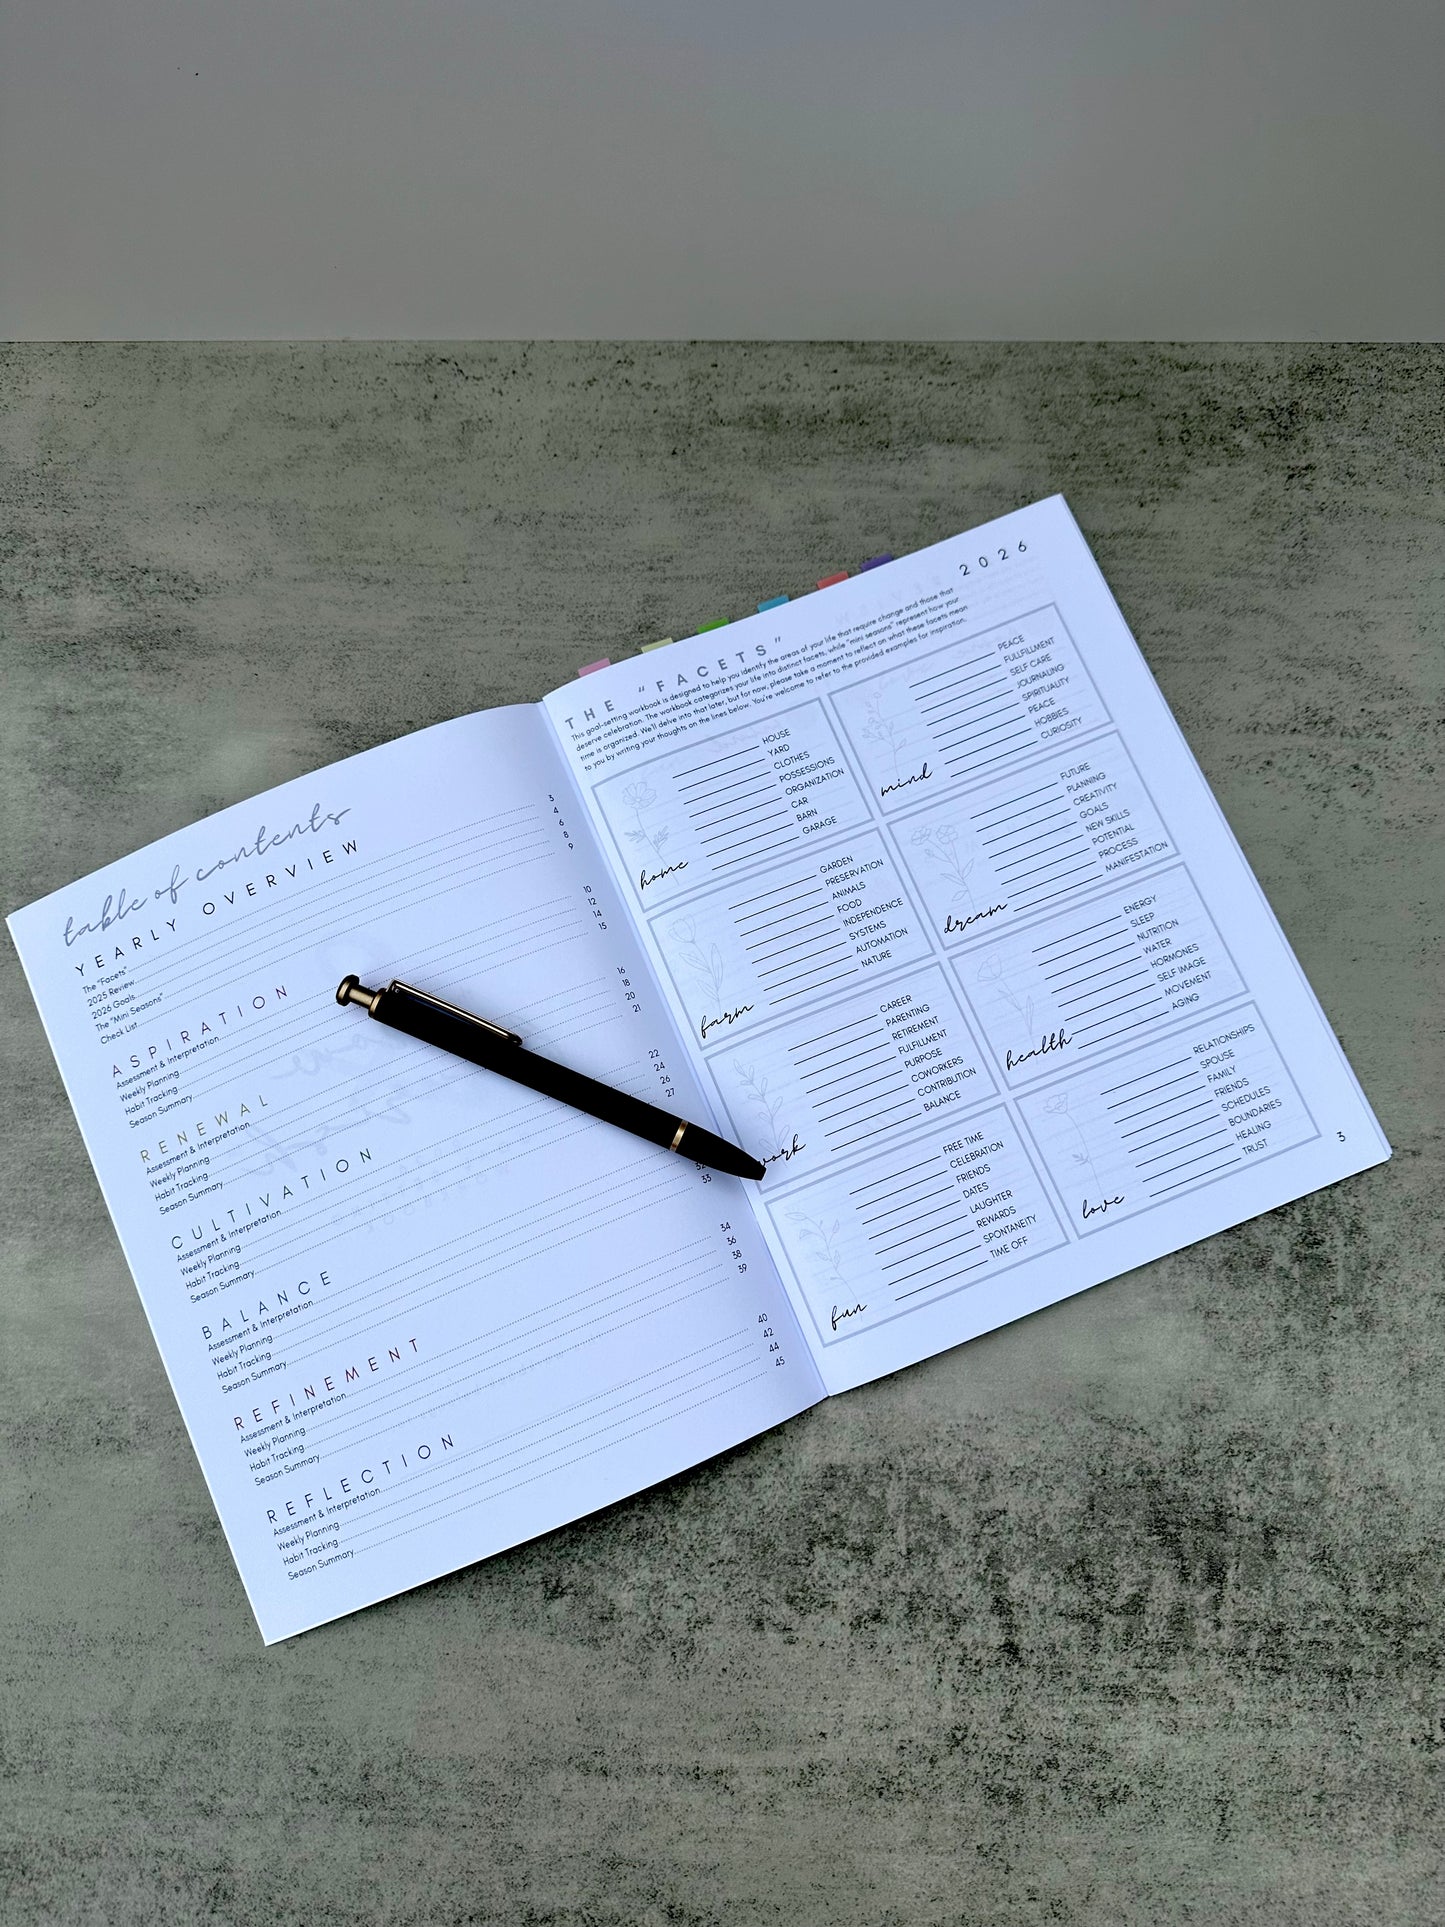 table of contents
YEARLY OVERVIEW
The "Facets" 3
2025 Review 4
2026 Goals 6
The "Mini Seasons" 8
Check List 9
ASPIRATION
Assessment & Interpretation 10
Weekly Planning 12
Habit Tracking 14
Season Summary 15
RENEWAL
Assessment & Interpretation 16
Weekly Planning 18
Habit Tracking 20
Season Summary 21
CULTIVATION
Assessment & Interpretation 22
Weekly Planning 24
Habit Tracking 26
Season Summary 27
BALANCE
Assessment & Interpretation
Weekly Planning
Habit Tracking 32
Season Summary 33
REFINEMENT
Assessment & Interpretation 34
Weekly Planning 36
Habit Tracking 38
Season Summary 39
REFLECTION
Assessment & Interpretation 40
Weekly Planning 42
Habit Tracking 44
Season Summary 45
THE "FACETS" 2026
This goal-setting workbook is designed to help you identify the areas of your life that require change and those that
deserve celebration. The workbook categorizes your life into distinct facets, while "mini seasons" represent how your
time is organized. We'll delve into that later, but for now, please take a moment to reflect on what these facets mean
to you by writing your thoughts on the lines below. You're welcome to refer to the provided examples for inspiration.
HOUSE
YARD
CLOTHES
POSSESSIONS
ORGANIZATION
CAR
BARN
GARAGE
home
PEACE
FULLFILLMENT
SELF CARE
JOURNALING
SPIRITUALITY
PEACE
HOBBIES
CURIOSITY
mind
GARDEN
PRESERVATION
ANIMALS
FOOD
INDEPENDENCE
SYSTEMS
AUTOMATION
NATURE
farm
FUTURE
PLANNING
CREATIVITY
GOALS
NEW SKILLS
POTENTIAL
PROCESS
MANIFESTATION
dream
CAREER
PARENTING
RETIREMENT
FULFILLMENT
PURPOSE
COWORKERS
CONTRIBUTION
BALANCE
work
ENERGY
SLEEP
NUTRITION
WATER
HORMONES
SELF IMAGE
MOVEMENT
AGING
health
FREE TIME
CELEBRATION
FRIENDS
DATES
LAUGHTER
REWARDS
SPONTANEITY
TIME OFF
fun
RELATIONSHIPS
SPOUSE
FAMILY
FRIENDS
SCHEDULES
BOUNDARIES
HEALING
TRUST
love
3